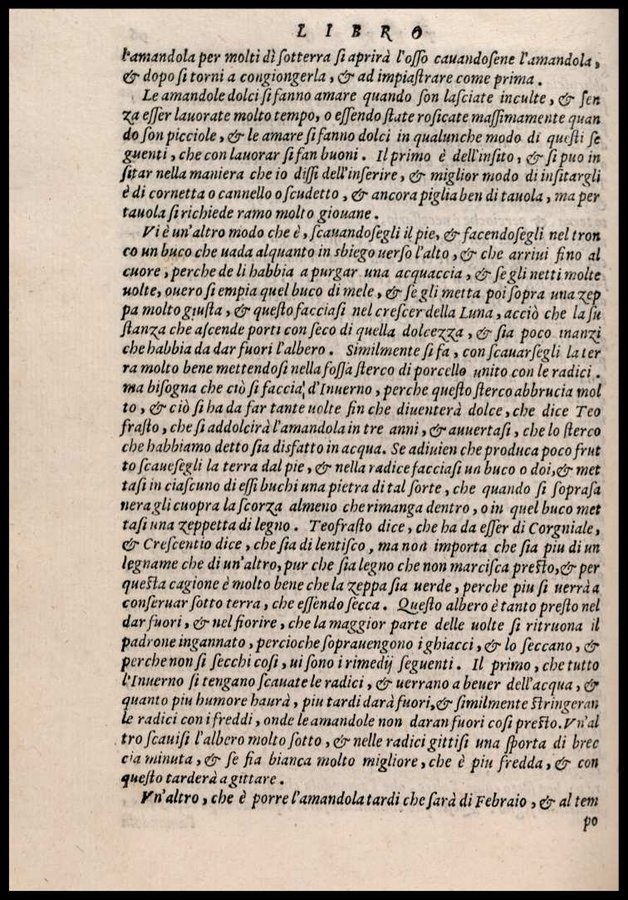 LIBRO
l'amandola per molti dì sotterra si aprirà l'osso cauandosene l'amandola,
& dopo si torni a congiongerla, & ad impiastrare come prima.
Le amandole dolci si fanno amare quando son lasciate inculte, & sen
za esser lauorate molto tempo, o essendo state rosicate massimamente quan
do son picciole, & le amare si fanno dolci in qualunche modo di questi se
guenti, che con lauorar si fan buoni. Il primo è dell'insito, & si puo in
sitar nella maniera che io dissi dell'inserire, & miglior modo di insitargli
è di cornetta o cannello o scudetto, & ancora piglia ben di tauola, ma per
tauola si richiede ramo molto giouane.
Vi è un'altro modo che è, scauandosegli il pie, & facendosegli nel tron
co un buco che uada alquanto in sbiego uerso l'alto, & che arriui fino al
cuore, perche de li habbia a purgar una acquaccia, & se gli netti molte
uolte, ouero si empia quel buco di mele, & se gli metta poi sopra una zep
pa molto giusta, & questo facciasi nel crescer della Luna, acciò che la su
stanza che ascende porti con seco di quella dolcezza, & sia poco inanzi
che habbia da dar fuori l'albero. Similmente si fa, con scauarsegli la ter
ra molto bene mettendosi nella fossa sterco di porcello unito con le radici.
ma bisogna che ciò si faccia d'Inuerno, perche questo sterco abbrucia mol
to, & ciò si ha da far tante uolte fin che diuenterà dolce, che dice Teo
frasto, che si addolcirà l'amandola in tre anni, & auuertasi, che lo sterco
che habbiamo detto sia disfatto in acqua. Se adiuien che produca poco frut
to scauesegli la terra dal pie, & nella radice facciasi un buco o doi, & met
tasi in ciascuno di essi buchi una pietra di tal sorte, che quando si soprasa
nera gli cuopra la scorza almeno che rimanga dentro, o in quel buco met
tasi una zeppetta di legno. Teofrasto dice, che ha da esser di Corgniale,
& Crescentio dice, che sia di lentisco, ma non importa che sia piu di un
legname che di un'altro, pur che sia legno che non marcisca presto, & per
questa cagione è molto bene che la zeppa sia uerde, perche piu si uerrà a
conseruar sotto terra, che essendo secca. Questo albero è tanto presto nel
dar fuori, & nel fiorire, che la maggior parte delle uolte si ritruona il
padrone ingannato, percioche soprauengono i ghiacci, & lo seccano, &
perche non si secchi cosi, ui sono i rimedij seguenti. Il primo, che tutto
l'Inuerno si tengano scauate le radici, & uerrano a beuer dell'acqua, &
quanto piu humore haurà, piu tardi darà fuori, & similmente stringeran
le radici con i freddi, onde le amandole non daran fuori cosi presto. Vn'al
tro scauisi l'albero molto sotto, & nelle radici gittisi una sporta di brec
cia minuta, & se fia bianca molto migliore, che è piu fredda, & con
questo tarderà a gittare.
Vn'altro, che è porre l'amandola tardi che sarà di Febraio, & al tem
po